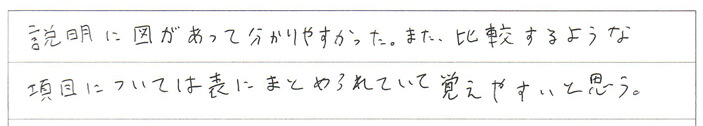 説明に図があって分かりやすかった。また、比較するような
項目については表にまとめられていて覚えやすいと思う。